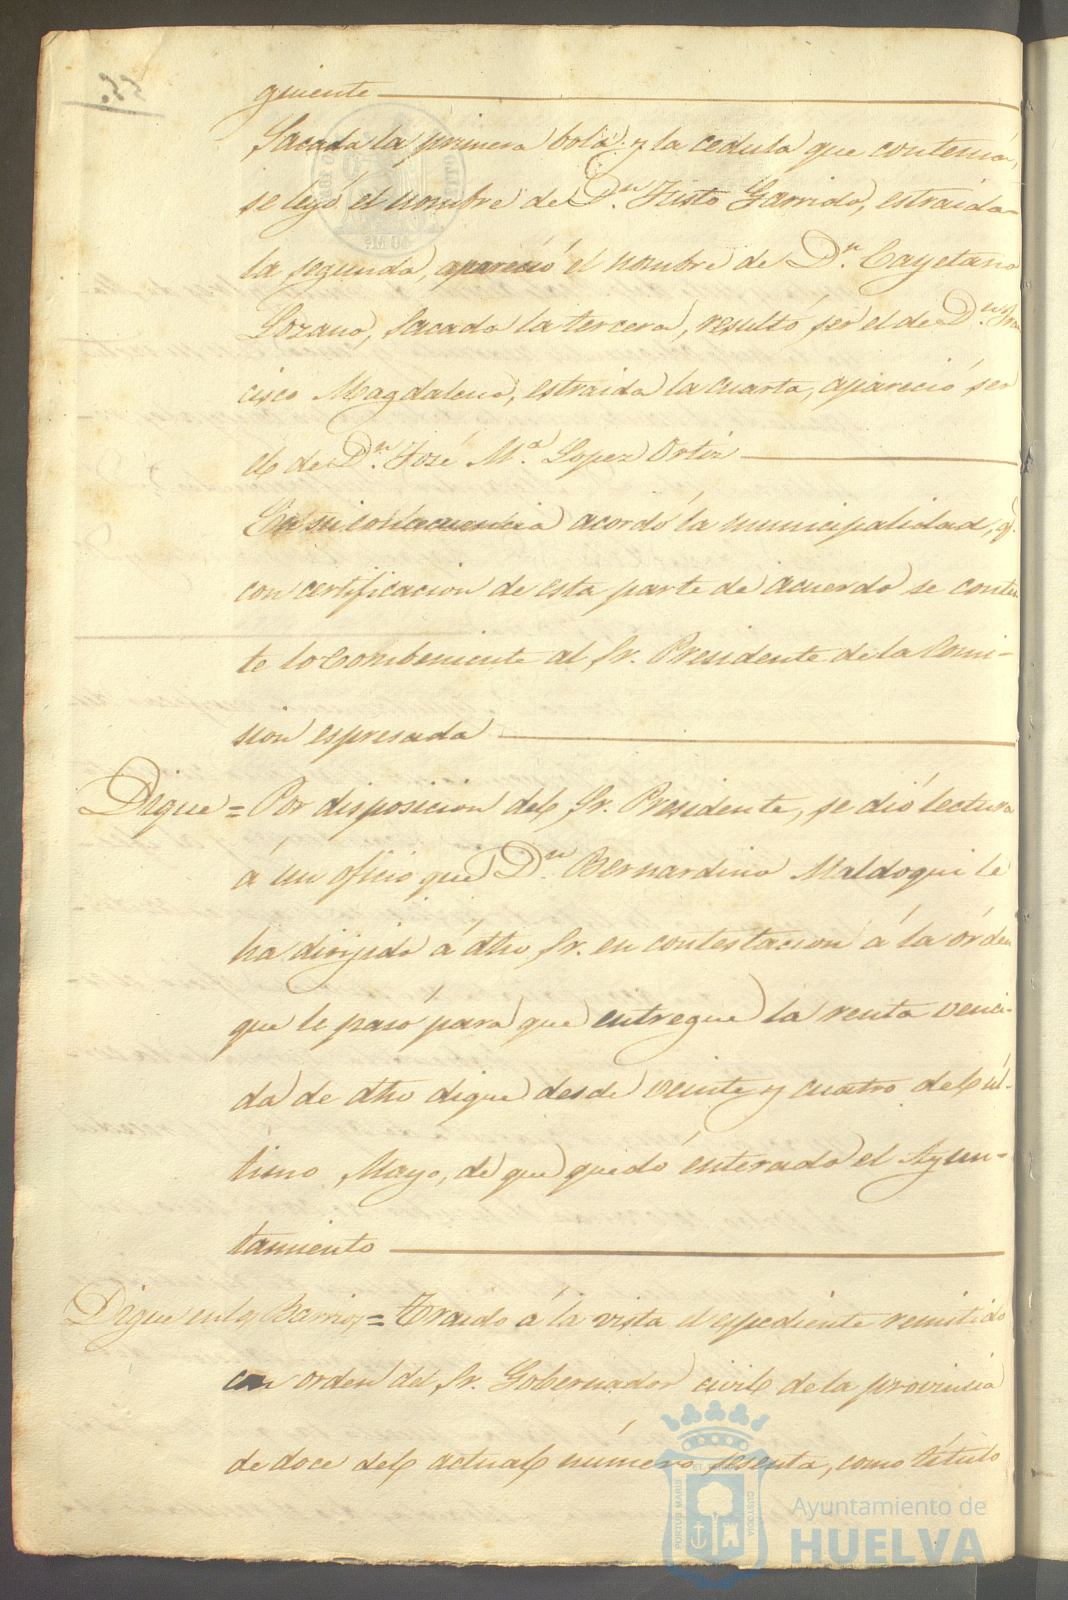 guiente
Sacada la primera bola y la cedula que contenia,
se leyó el nombre de Dn. Justo Garrido, estraida
la segunda, apareció el nombre de Dn. Cayetano
Lozano, sacada la tercera, resultó ser el de Dn. Fran
cisco Magdaleno, estraida la cuarta, apareció ser
el de Dn. José Ma. Lopez Ortiz
En su consecuencia acordó la municipalidad, q.
con certificacion de esta parte de acuerdo se contes
te lo combeniente al Sr. Presidente de la Comi-
sion espresada
Dique = Por disposicion del Sr. Presidente, se dió lectura
á un oficio que Dn. Bernardino Maldoqui le
ha dirijido á dho Sr. en contestacion á la órden
que le pasó para que entregue la renta venci-
da de dho dique desde veinte y cuatro del úl-
timo Mayo, de que quedó enterado el Ayun-
tamiento
Dique en los Barrios = Traido á la vista el espediente remitido
con orden del Sr. Gobernador civil de la provincia
de doce del actual número sesenta, como título
PORTUS MARIS
CUSTODIA
Ayuntamiento de
HUELVA